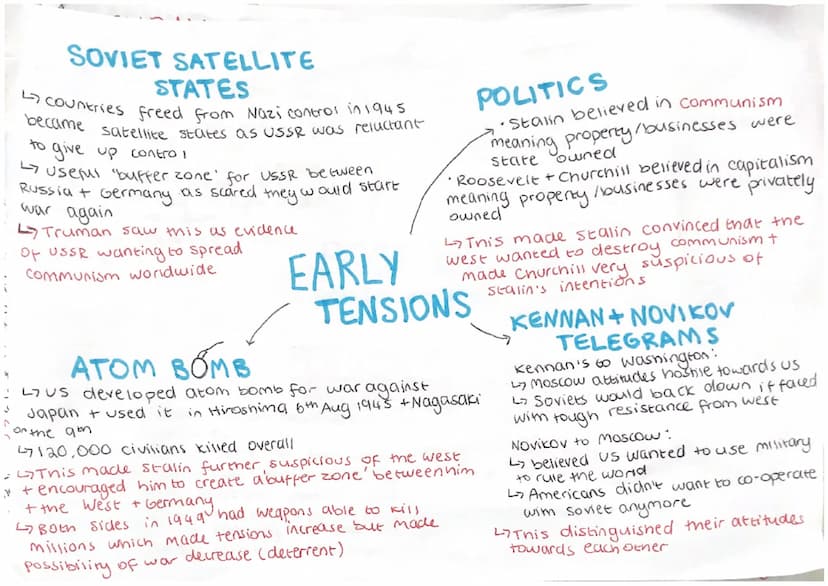 SOVIET SATELLITE
STATES
↳ countries freed from Nazi control in 1945
became satellite states as USSR was reluctant
to give up control
↳ useful 'buffer zone' for USSR between
Russia + Germany as scared they would start
war again
↳ Truman saw this as evidence
of USSR wanting to spread
communism worldwide
POLITICS
• Stalin believed in communism
meaning property/businesses were
state owned
• Roosevelt + Churchill believed in capitalism
meaning property/businesses were privately
owned
↳ This made Stalin convinced that the
west wanted to destroy communism +
made Churchill very suspicious of
Stalin's intentions
EARLY
TENSIONS
ATOM BOMB
↳ US developed atom bomb for war against
Japan + used it in Hiroshima 6th Aug 1945 + Nagasaki
on the 9th
↳ 120,000 civilians killed overall
↳ This made Stalin further suspicious of the west
+ encouraged him to create a 'buffer zone' between him
+ the West + Germany
↳ Both sides in 1949 had weapons able to kill
millions which made tensions increase but made
possibility of war decrease (deterrent)
KENNAN + NOVIKOV
TELEGRAMS
Kennan's to Washington:
↳ Moscow attitudes hostile towards US
↳ Soviets would back down if faced
with tough resistance from west
Novikov to Moscow:
↳ believed US wanted to use military
to rule the world
↳ Americans didn't want to co-operate
with soviet anymore
↳ This distinguished their attitudes
towards each other